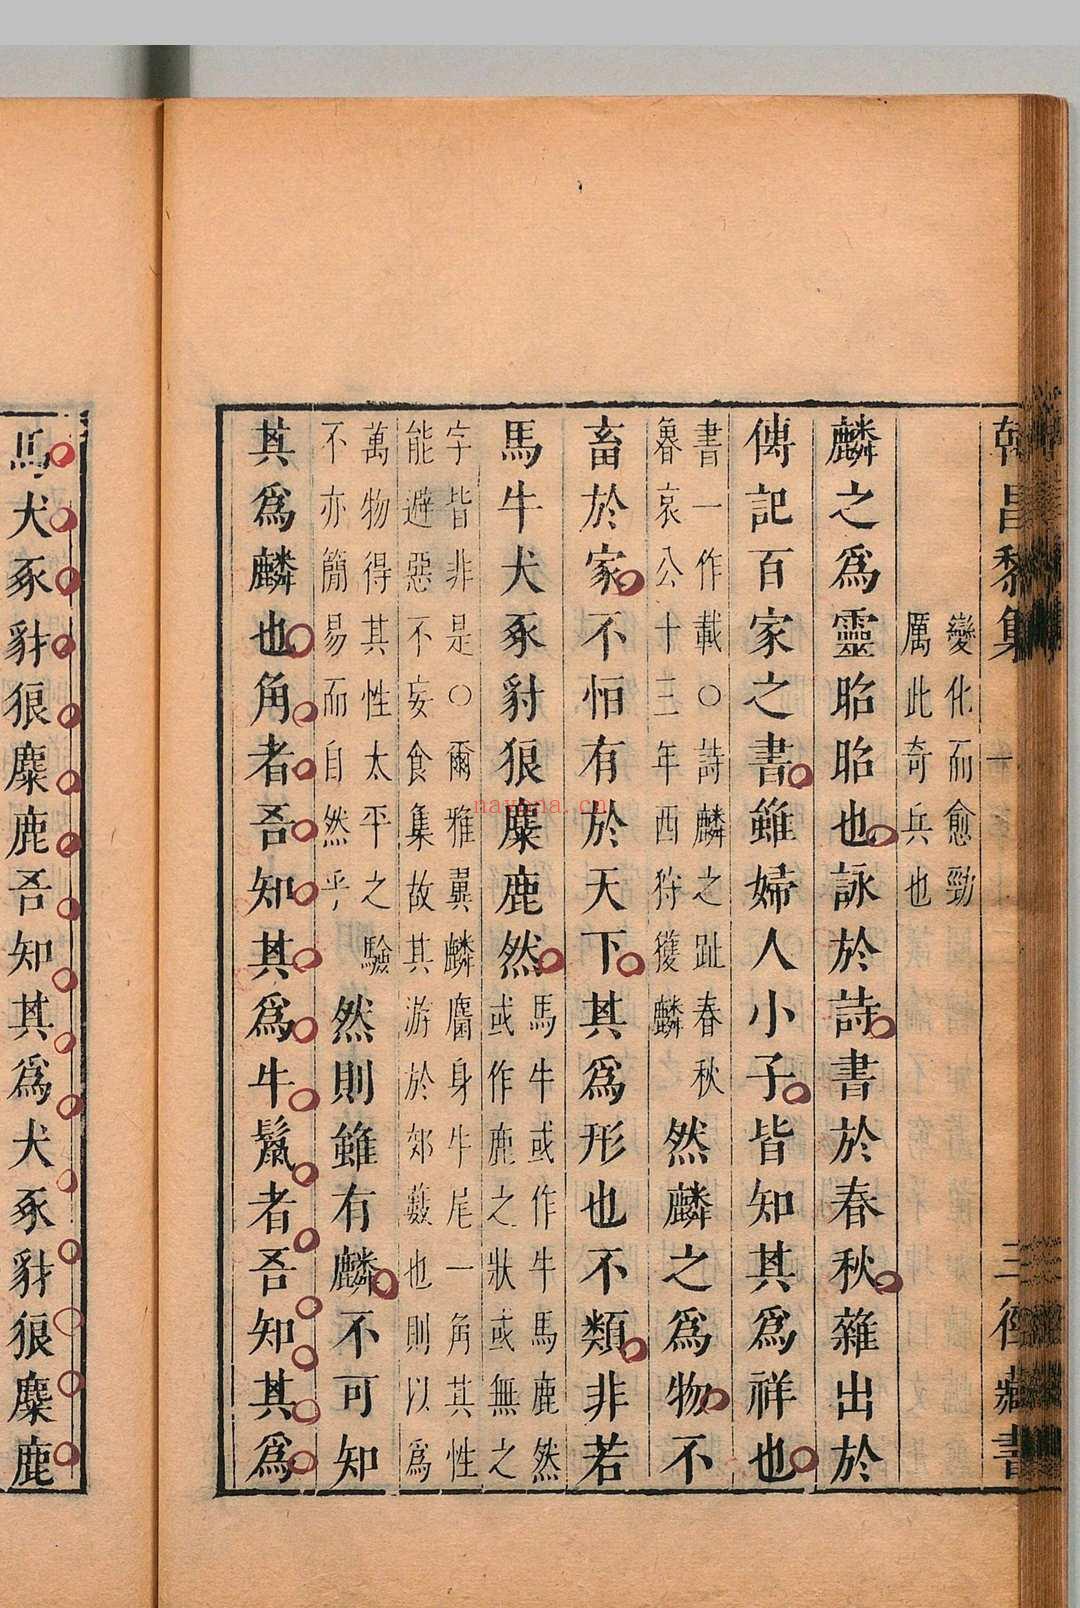 韓昌黎集 卷一 三徑藏書
變化而愈勁
厲此奇兵也
麟之為靈昭昭也詠於詩書於春秋雜出於
傳記百家之書雖婦人小子皆知其為祥也
書一作載○詩麟之趾春秋
魯哀公十三年西狩獲麟
然麟之為物不
畜於家不怕有於天下其為形也不類非若
馬牛犬豕豺狼麋鹿然
馬牛或作牛馬鹿然
或作鹿之狀或無之
字皆非是○爾雅翼麟麕身牛尾一角其性
能避惡不妄食集故其游於郊藪也則以為
萬物得其性太平之驗
不亦簡易而自然乎
然則雖有麟不可知
其為麟也角者吾知其為牛鬣者吾知其為
馬犬豕豺狼麋鹿吾知其為犬豕豺狼麋鹿
nayona.cn